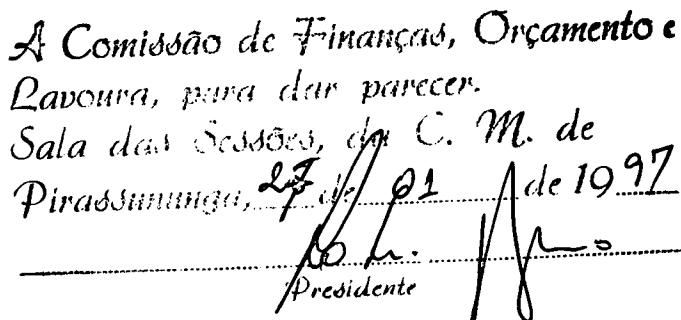 A Comissão de Finanças, Orçamento e
Lavoura, para dar parecer.
Sala das Sessões, da C. M. de
Pirassununga, 27 de 01 de 1997
Presidente